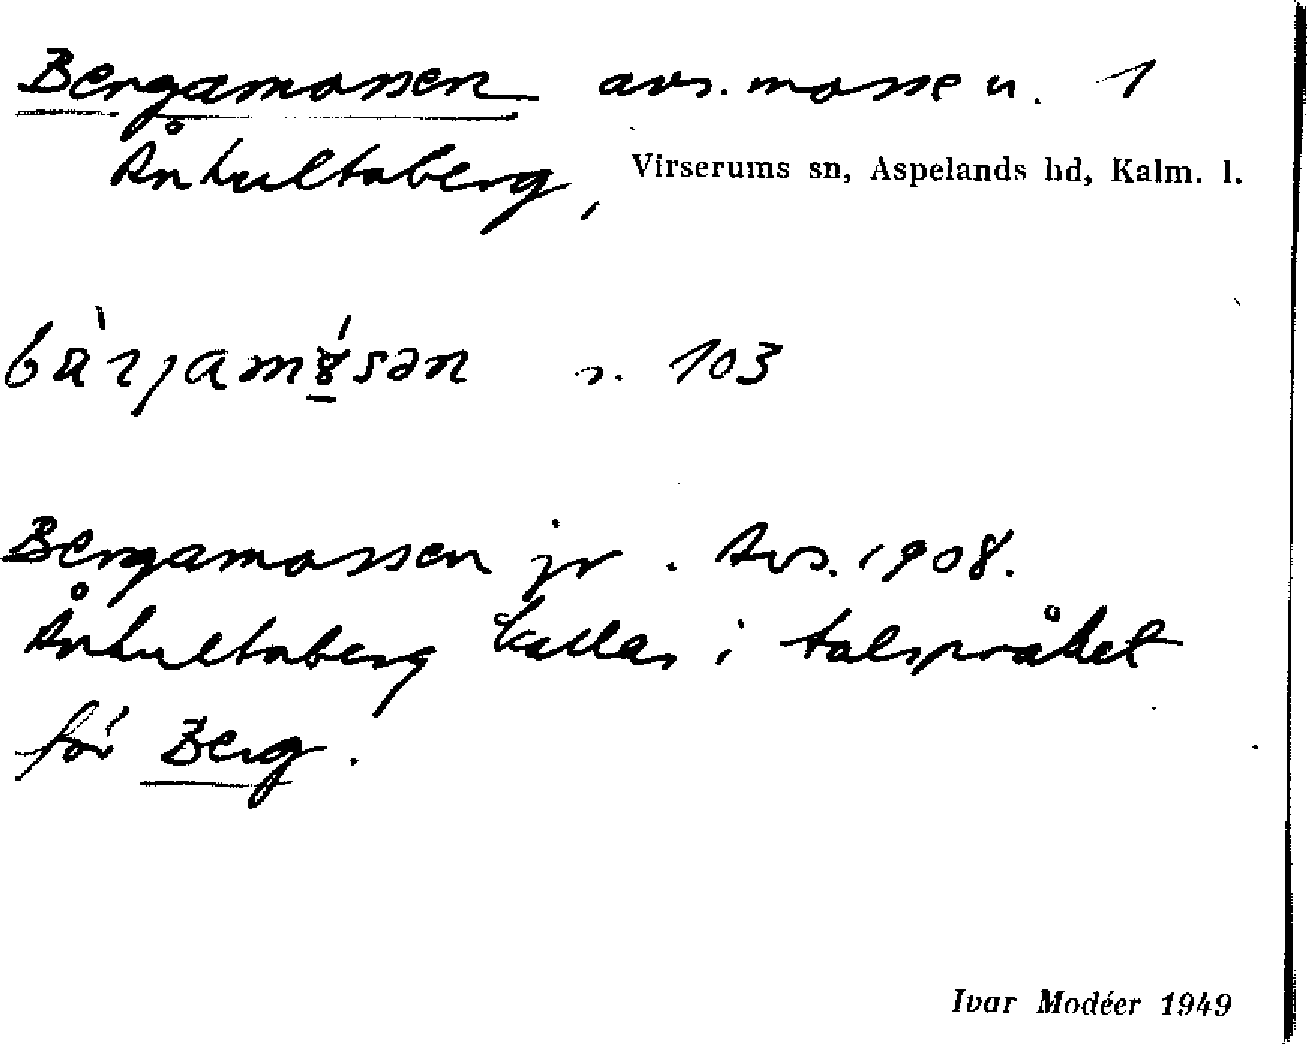 Bergamossen avs. mosse u. 1
Ånhultaberg, Virserums sn, Aspelands hd, Kalm. l.
bàrjamó̱sən s. 103
Bergamossen jr. Avs. 1908.
Ånhultaberg kallas i talspråket
för Berg.
Ivar Modéer 1949